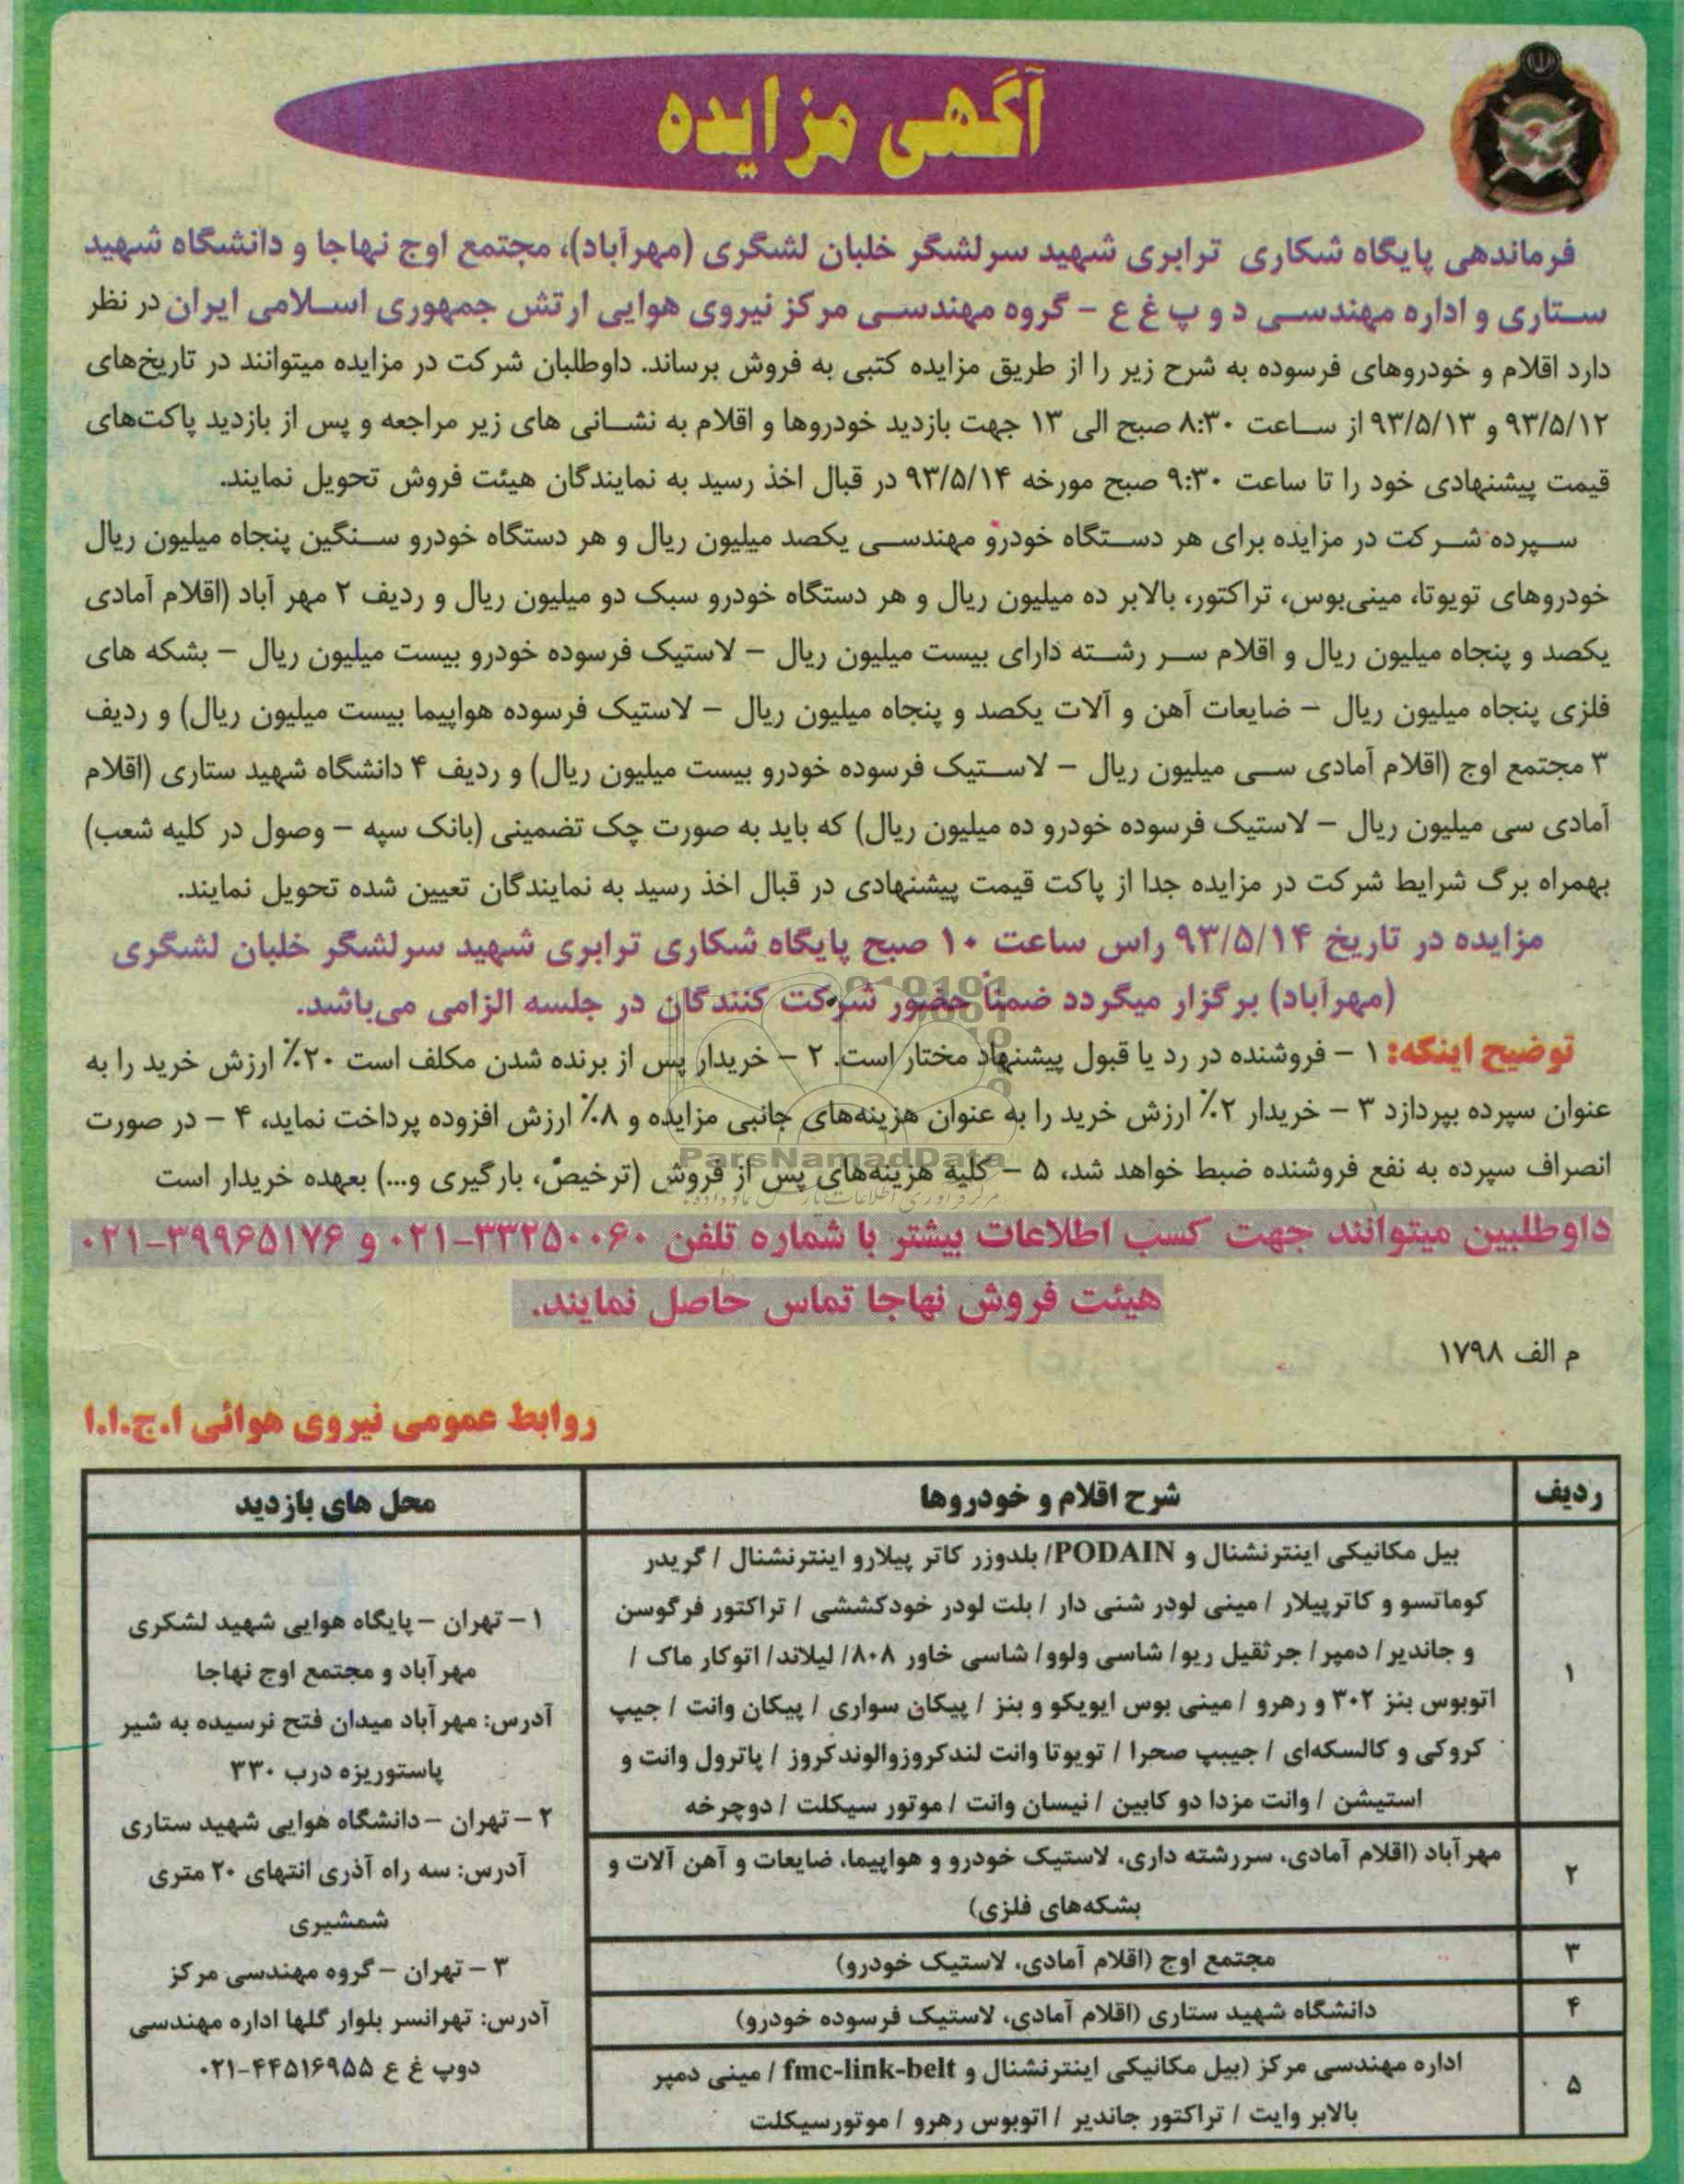 آگهی مزایده
فرماندهی پایگاه شکاری ترابری شهید سرلشگر خلبان لشگری (مهرآباد)، مجتمع اوج نهاجا و دانشگاه شهید
ستاری و اداره مهندسی د و پ غ ع – گروه مهندسی مرکز نیروی هوایی ارتش جمهوری اسلامی ایران در نظر
دارد اقلام و خودروهای فرسوده به شرح زیر را از طریق مزایده کتبی به فروش برساند. داوطلبان شرکت در مزایده میتوانند در تاریخ‌های
۹۳/۵/۱۲ و ۹۳/۵/۱۳ از ساعت ۸:۳۰ صبح الی ۱۳ جهت بازدید خودروها و اقلام به نشانی های زیر مراجعه و پس از بازدید پاکت‌های
قیمت پیشنهادی خود را تا ساعت ۹:۳۰ صبح مورخه ۹۳/۵/۱۴ در قبال اخذ رسید به نمایندگان هیئت فروش تحویل نمایند.
سپرده شرکت در مزایده برای هر دستگاه خودرو مهندسی یکصد میلیون ریال و هر دستگاه خودرو سنگین پنجاه میلیون ریال
خودروهای تویوتا، مینی‌بوس، تراکتور، بالابر ده میلیون ریال و هر دستگاه خودرو سبک دو میلیون ریال و ردیف ۲ مهر آباد (اقلام آمادی
یکصد و پنجاه میلیون ریال و اقلام سر رشته دارای بیست میلیون ریال – لاستیک فرسوده خودرو بیست میلیون ریال – بشکه های
فلزی پنجاه میلیون ریال – ضایعات آهن و آلات یکصد و پنجاه میلیون ریال – لاستیک فرسوده هواپیما بیست میلیون ریال) و ردیف
۳ مجتمع اوج (اقلام آمادی سی میلیون ریال – لاستیک فرسوده خودرو بیست میلیون ریال) و ردیف ۴ دانشگاه شهید ستاری (اقلام
آمادی سی میلیون ریال – لاستیک فرسوده خودرو ده میلیون ریال) که باید به صورت چک تضمینی (بانک سپه – وصول در کلیه شعب)
بهمراه برگ شرایط شرکت در مزایده جدا از پاکت قیمت پیشنهادی در قبال اخذ رسید به نمایندگان تعیین شده تحویل نمایند.
مزایده در تاریخ ۹۳/۵/۱۴ راس ساعت ۱۰ صبح پایگاه شکاری ترابری شهید سرلشگر خلبان لشگری
(مهرآباد) برگزار میگردد ضمناً حضور شرکت کنندگان در جلسه الزامی می‌باشد.
توضیح اینکه: ۱ – فروشنده در رد یا قبول پیشنهاد مختار است. ۲ – خریدار پس از برنده شدن مکلف است ۲۰٪ ارزش خرید را به
عنوان سپرده بپردازد ۳ – خریدار ۲٪ ارزش خرید را به عنوان هزینه‌های جانبی مزایده و ۸٪ ارزش افزوده پرداخت نماید، ۴ – در صورت
انصراف سپرده به نفع فروشنده ضبط خواهد شد، ۵ – کلیه هزینه‌های پس از فروش (ترخیص، بارگیری و...) بعهده خریدار است
ParsNamadData
داوطلبین میتوانند جهت کسب اطلاعات بیشتر با شماره تلفن ۳۳۲۵۰۰۶۰-۰۲۱ و ۳۹۹۶۵۱۷۶-۰۲۱
هیئت فروش نهاجا تماس حاصل نمایند.
م الف ۱۷۹۸
روابط عمومی نیروی هوائی ا.ج.ا.ا
ردیف شرح اقلام و خودروها محل های بازدید
۱
بیل مکانیکی اینترنشنال و PODAIN/ بلدوزر کاتر پیلارو اینترنشنال / گریدر
کوماتسو و کاترپیلار / مینی لودر شنی دار / بلت لودر خودکششی / تراکتور فرگوسن
و جاندیر/ دمپر/ جرثقیل ریو/ شاسی ولوو/ شاسی خاور ۸۰۸/ لیلاند/ اتوکار ماک /
اتوبوس بنز ۳۰۲ و رهرو / مینی بوس ایویکو و بنز / پیکان سواری / پیکان وانت / جیپ
کروکی و کالسکه‌ای / جیپ صحرا / تویوتا وانت لندکروزوالوندکروز / پاترول وانت و
استیشن / وانت مزدا دو کابین / نیسان وانت / موتور سیکلت / دوچرخه
۲
مهرآباد (اقلام آمادی، سررشته داری، لاستیک خودرو و هواپیما، ضایعات و آهن آلات و
بشکه‌های فلزی)
۳
مجتمع اوج (اقلام آمادی، لاستیک خودرو)
۴
دانشگاه شهید ستاری (اقلام آمادی، لاستیک فرسوده خودرو)
۵
اداره مهندسی مرکز (بیل مکانیکی اینترنشنال و fmc-link-belt / مینی دمپر
بالابر وایت / تراکتور جاندیر / اتوبوس رهرو / موتورسیکلت
۱ – تهران – پایگاه هوایی شهید لشکری
مهرآباد و مجتمع اوج نهاجا
آدرس: مهرآباد میدان فتح نرسیده به شیر
پاستوریزه درب ۳۳۰
۲ – تهران – دانشگاه هوایی شهید ستاری
آدرس: سه راه آذری انتهای ۲۰ متری
شمشیری
۳ – تهران – گروه مهندسی مرکز
آدرس: تهرانسر بلوار گلها اداره مهندسی
دوپ غ ع ۴۴۵۱۶۹۵۵-۰۲۱